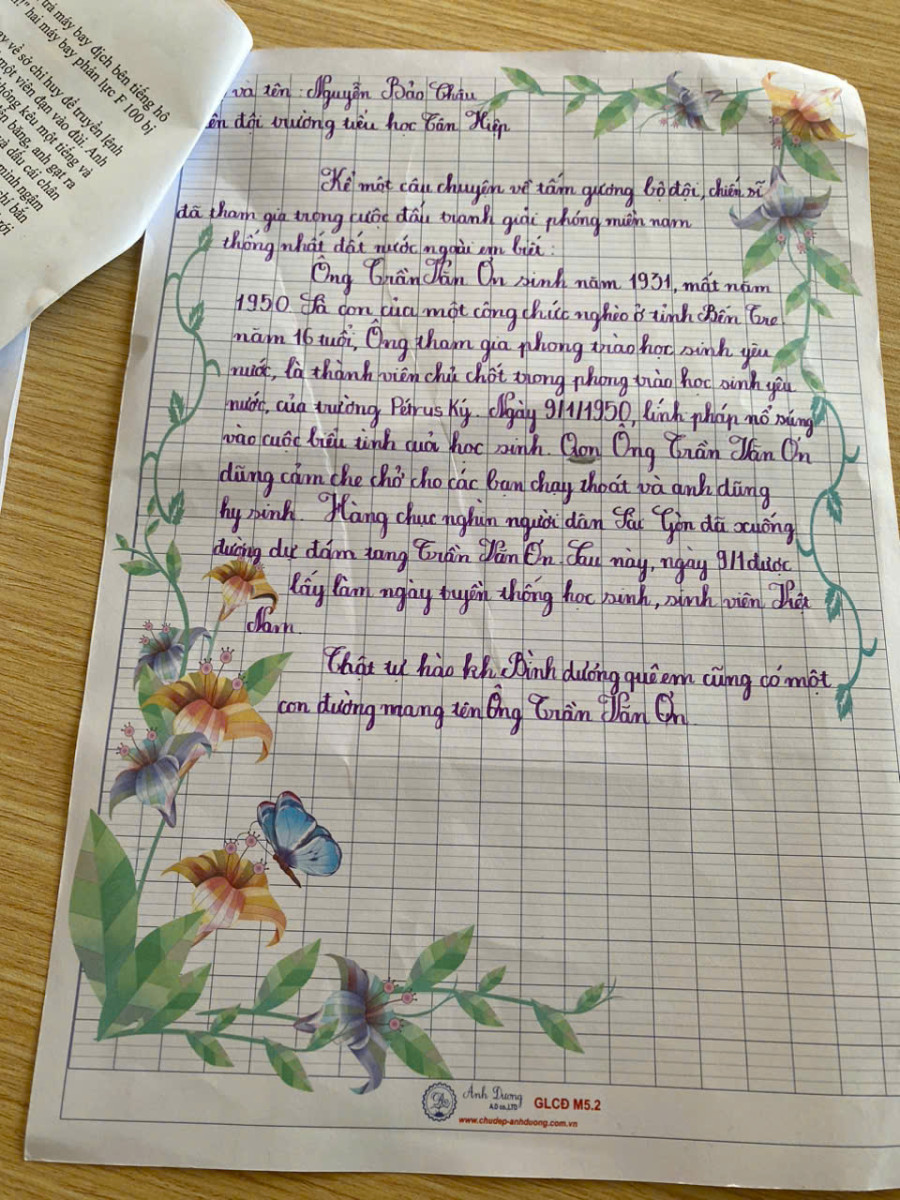 trả máy bay địch bên tiếng hô
hai máy bay phản lực F 100 bị
về sở chỉ huy để truyền lệnh
một viên đạn vào đùi. Anh
không kêu một tiếng và
băng, anh gạt ra
dấu cái chân
mình ngậm
chỉ bắn
và tên : Nguyễn Bảo Châu
ên đội trường tiểu học Tân Hiệp
Kể một câu chuyện về tấm gương bộ đội, chiến sĩ
đã tham gia trong cuộc đấu tranh giải phóng miền nam
thống nhất đất nước ngoài em biết :
Ông Trần Văn Ơn sinh năm 1931, mất năm
1950. Là con của một công chức nghèo ở tỉnh Bến Tre
năm 16 tuổi, Ông tham gia phong trào học sinh yêu
nước, là thành viên chủ chốt trong phong trào học sinh yêu
nước, của trường Pétrus Ký. Ngày 9/1/1950, lính pháp nổ súng
vào cuộc biểu tình cuả học sinh. Ông Trần Văn Ơn
dũng cảm che chở cho các bạn chạy thoát và anh dũng
hy sinh. Hàng chục nghìn người dân Sài Gòn đã xuống
đường dự đám tang Trần Văn Ơn. Sau này, ngày 9/1 được
lấy làm ngày truyền thống học sinh, sinh viên Việt
Nam.
Thật tự hào kh Bình dương quê em cũng có một
con đường mang tên Ông Trần Văn Ơn
Anh Dương
A.D co.,LTD
GLCĐ M5.2
www.chudep-anhduong.com.vn